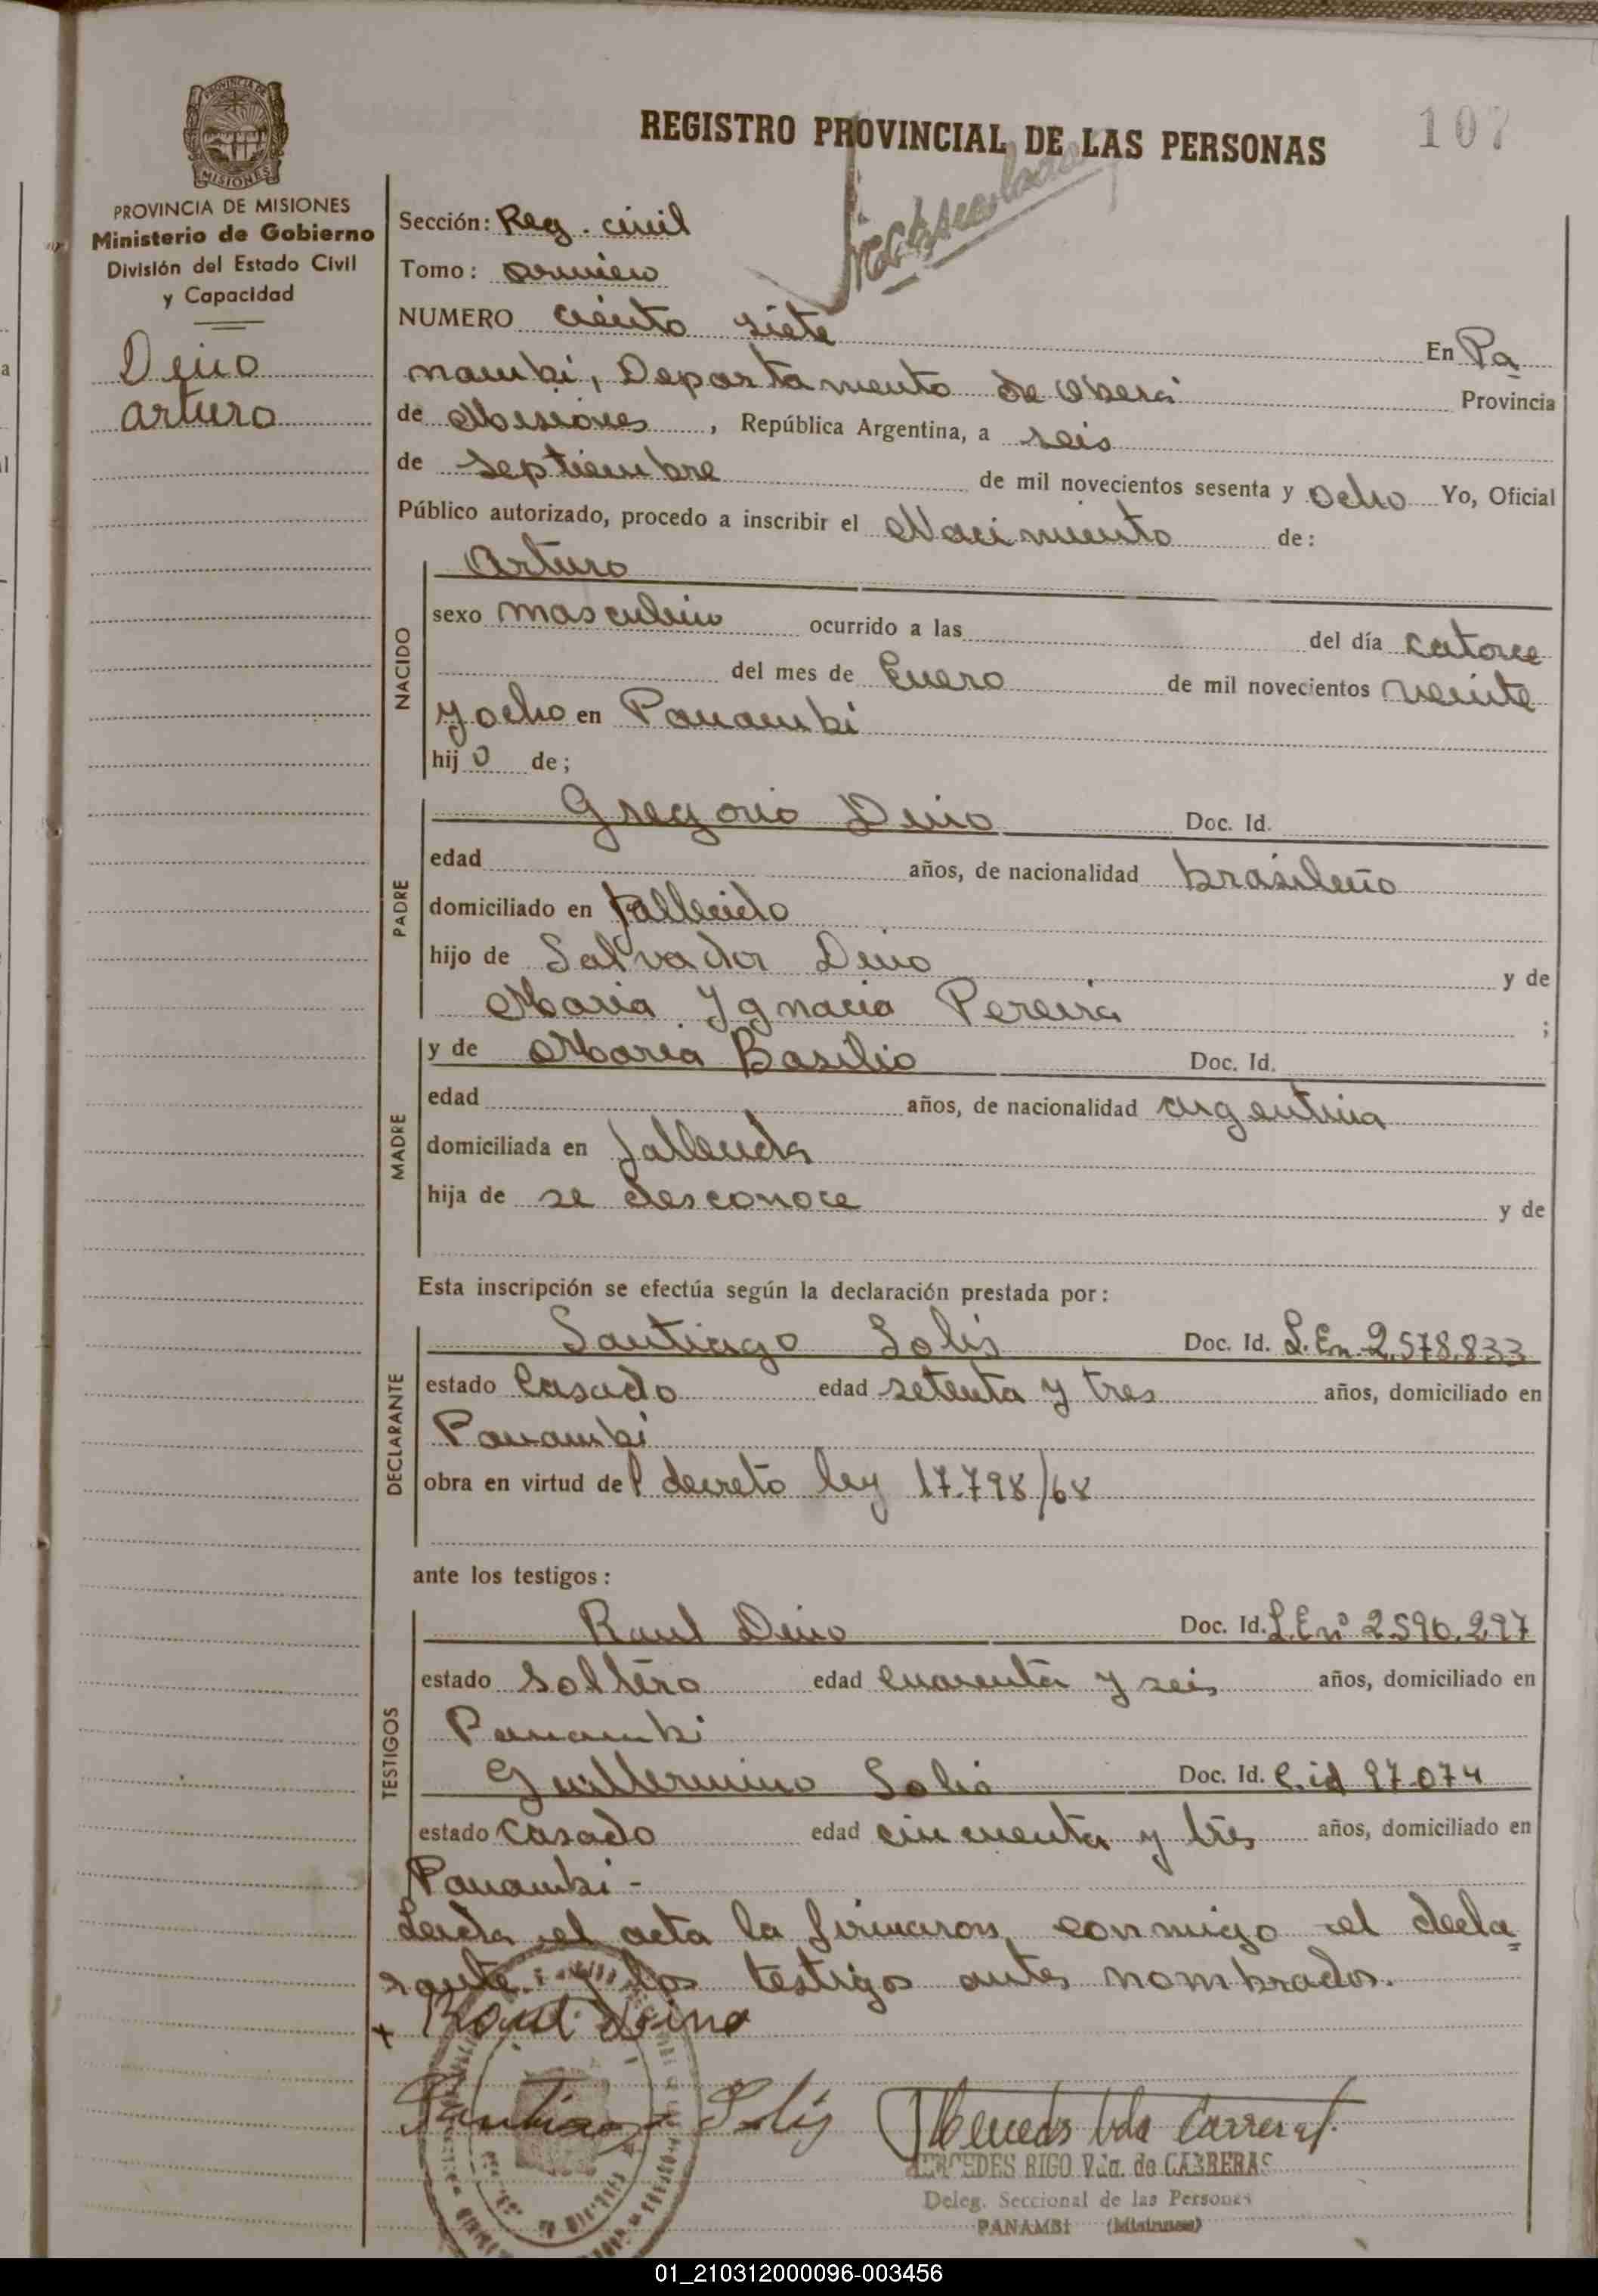 REGISTRO PROVINCIAL DE LAS PERSONAS
107
PROVINCIA DE
MISIONES
PROVINCIA DE MISIONES
Ministerio de Gobierno
División del Estado Civil
y Capacidad
Deino
Arturo
Sección: Reg. civil
Tomo:
NUMERO ciento siete
En Pa
nambi, Departamento de Oberá Provincia
de Misiones, República Argentina, a seis
de Septiembre de mil novecientos sesenta y ocho Yo, Oficial
Público autorizado, procedo a inscribir el Nacimiento de:
NACIDO
Arturo
sexo masculino ocurrido a las del día catorce
del mes de Enero de mil novecientos veinte
y ocho en Panambi
hijo de;
PADRE
Gregorio Deino Doc. Id.
edad años, de nacionalidad brasileño
domiciliado en fallecido
hijo de Salvador Deino y de
Maria Ygnacia Pereira ;
MADRE
y de Maria Basilio Doc. Id.
edad años, de nacionalidad argentina
domiciliada en fallecida
hija de se desconoce y de
Esta inscripción se efectúa según la declaración prestada por:
DECLARANTE
Santiago Solis Doc. Id. L.En. 2.578.833
estado Casado edad setenta y tres años, domiciliado en
Panambi
obra en virtud del decreto ley 17.798/68
ante los testigos:
TESTIGOS
Raul Deino Doc. Id. L.En° 2.590.297
estado Soltero edad cuarenta y seis años, domiciliado en
Panambi
Guillermino Solis Doc. Id. C.id 97.074
estado Casado edad cincuenta y tres años, domiciliado en
Panambi -
Leida el acta la firmaron conmigo el decla
rante y los testigos antes nombrados.
x Raul Deino
Santiago Solis
Mercedes Vda Carreras
MERCEDES RIGO Vda. de CARRERAS
Deleg. Seccional de las Personas
PANAMBI (Misiones)
01_210312000096-003456